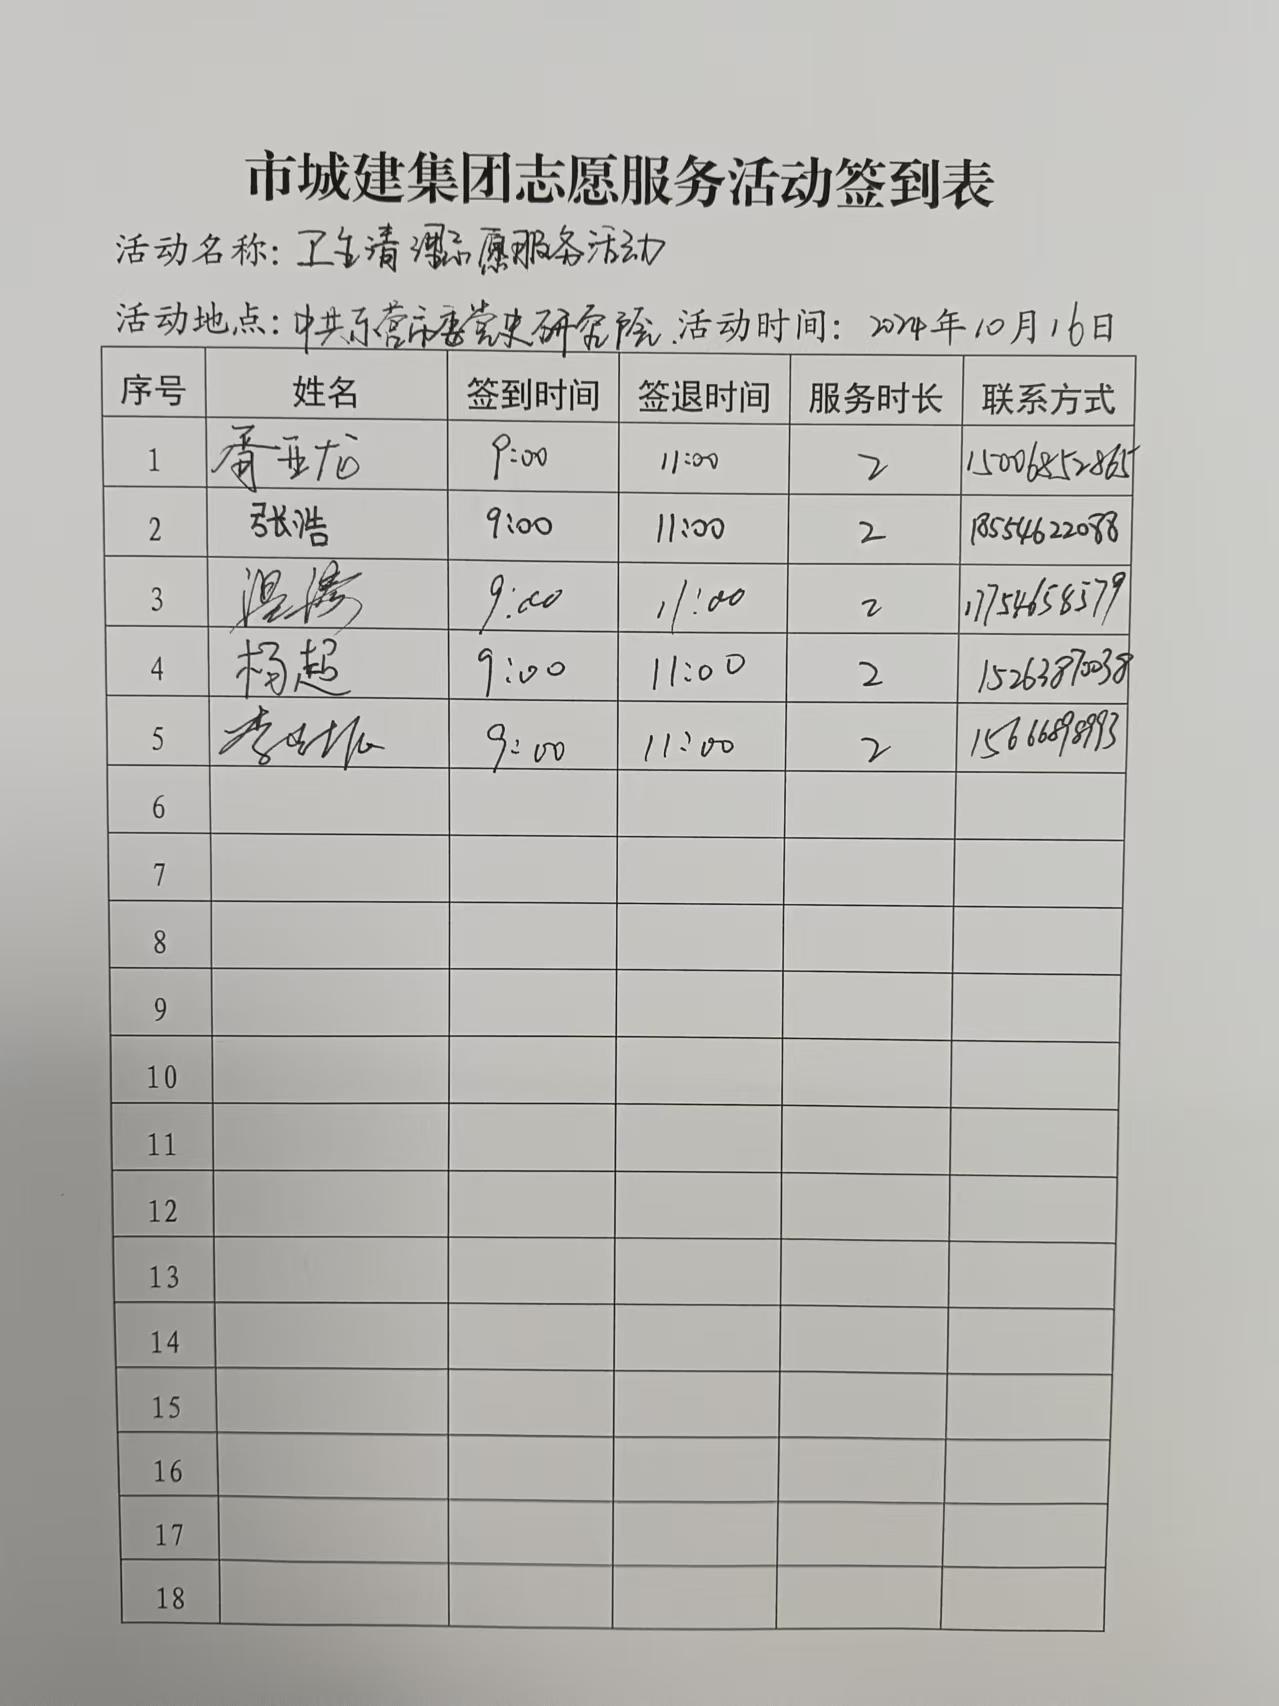 市城建集团志愿服务活动签到表
活动名称: 卫生清理志愿服务活动
活动地点: 中共东营市委党史研究院. 活动时间: 2024年10月16日
序号 姓名 签到时间 签退时间 服务时长 联系方式
1 胥亚龙 9:00 11:00 2 15006852865
2 张浩 9:00 11:00 2 18554622088
3 温 9:00 11:00 2 17754658579
4 杨超 9:00 11:00 2 15263870038
5 李 9:00 11:00 2 15666898993
6
7
8
9
10
11
12
13
14
15
16
17
18